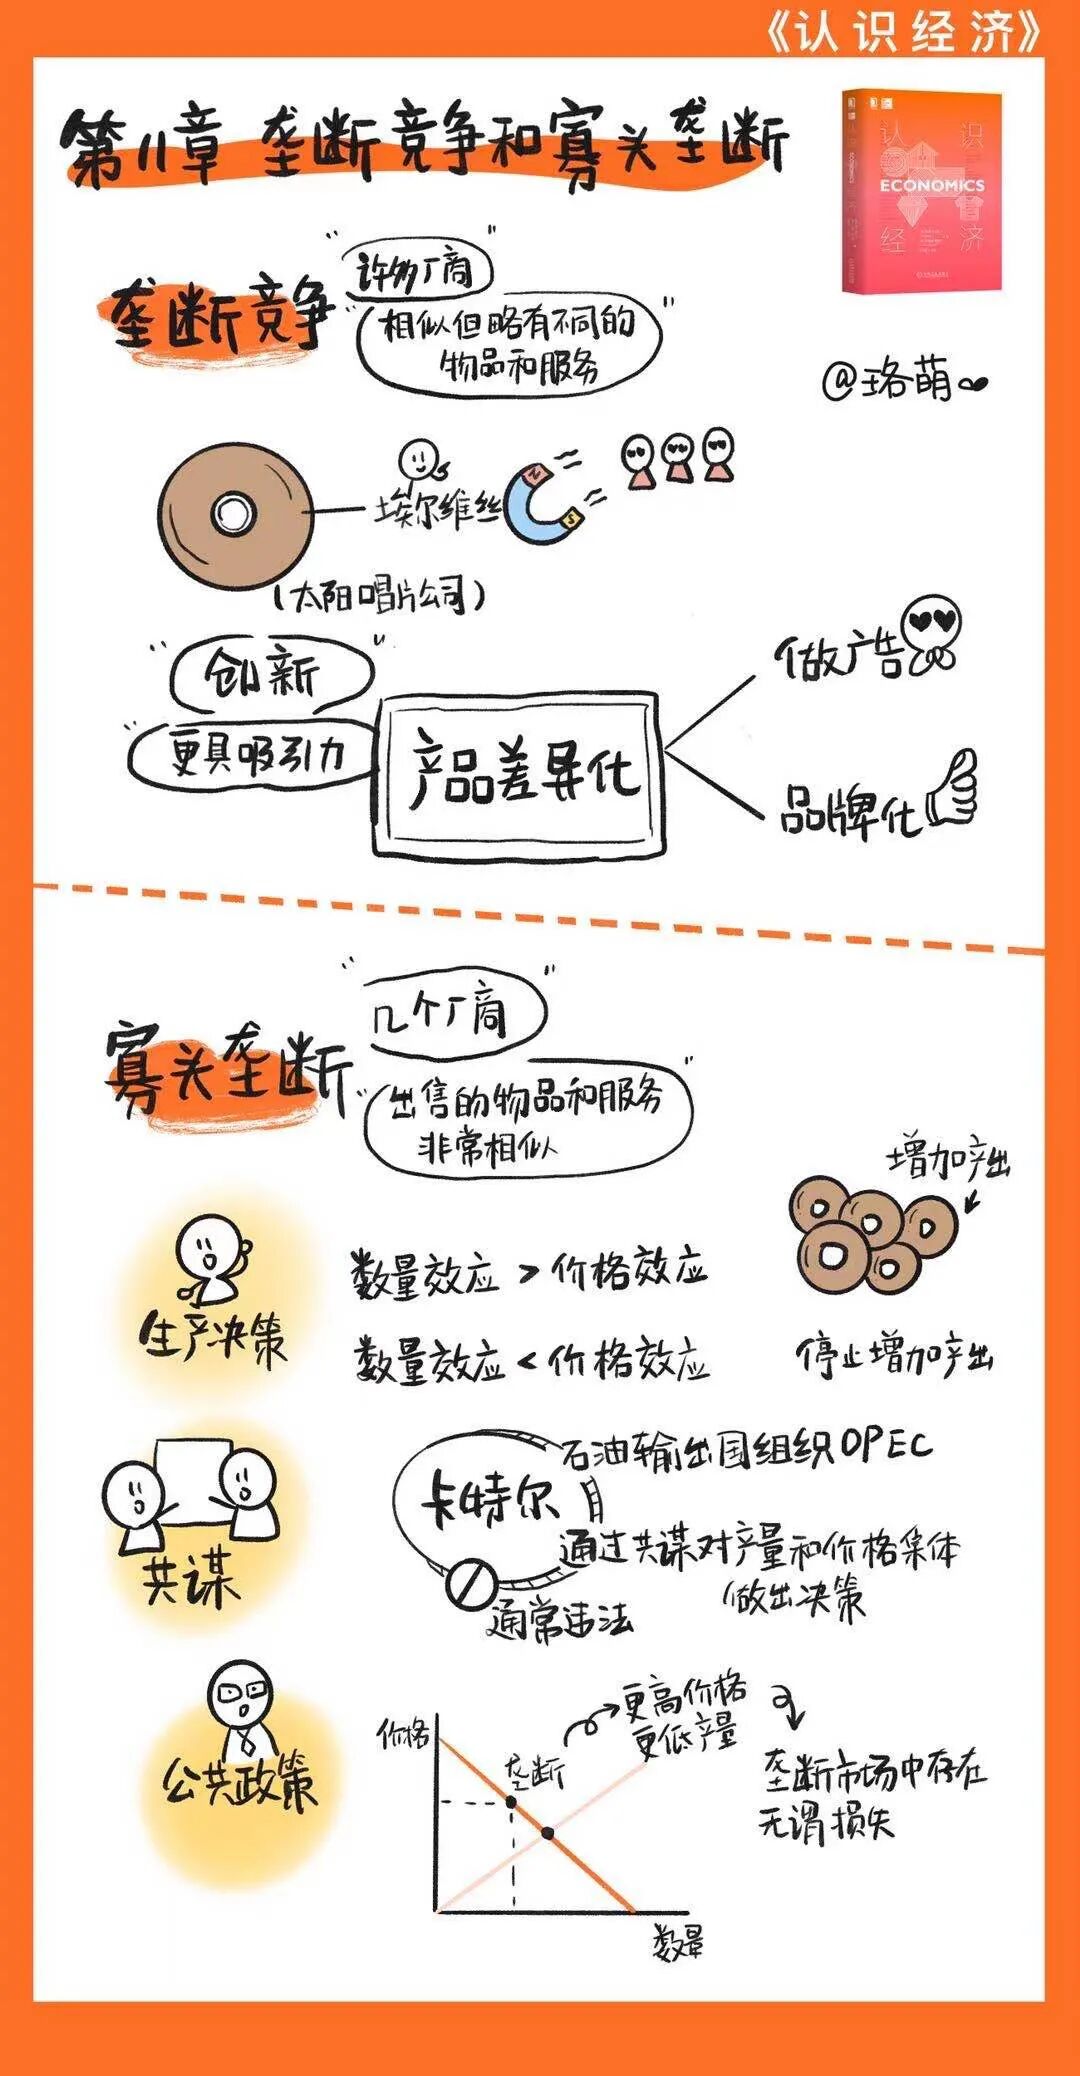 《认识经济》
第11章 垄断竞争和寡头垄断
认识
ECONOMICS
经济
垄断竞争
"许多厂商"
"相似但略有不同的
物品和服务"
@珞萌
埃尔维丝
N
S
(太阳唱片公司)
"创新"
"更具吸引力"
产品差异化
做广告
品牌化
寡头垄断
"几个厂商"
"出售的物品和服务
非常相似"
增加产出
生产决策
数量效应 > 价格效应
数量效应 < 价格效应
停止增加产出
共谋
卡特尔
石油输出国组织OPEC
通过共谋对产量和价格集体
做出决策
通常违法
公共政策
价格
垄断
更高价格
更低产量
垄断市场中存在
无谓损失
数量